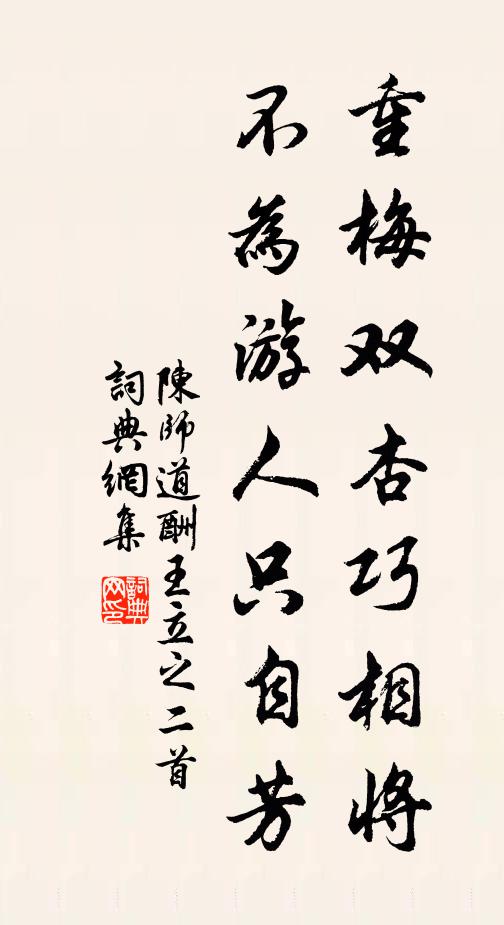 重梅双杏巧相將
不為游人只自芳
陳師道酬王立之二首
詞典網集
詞典网印